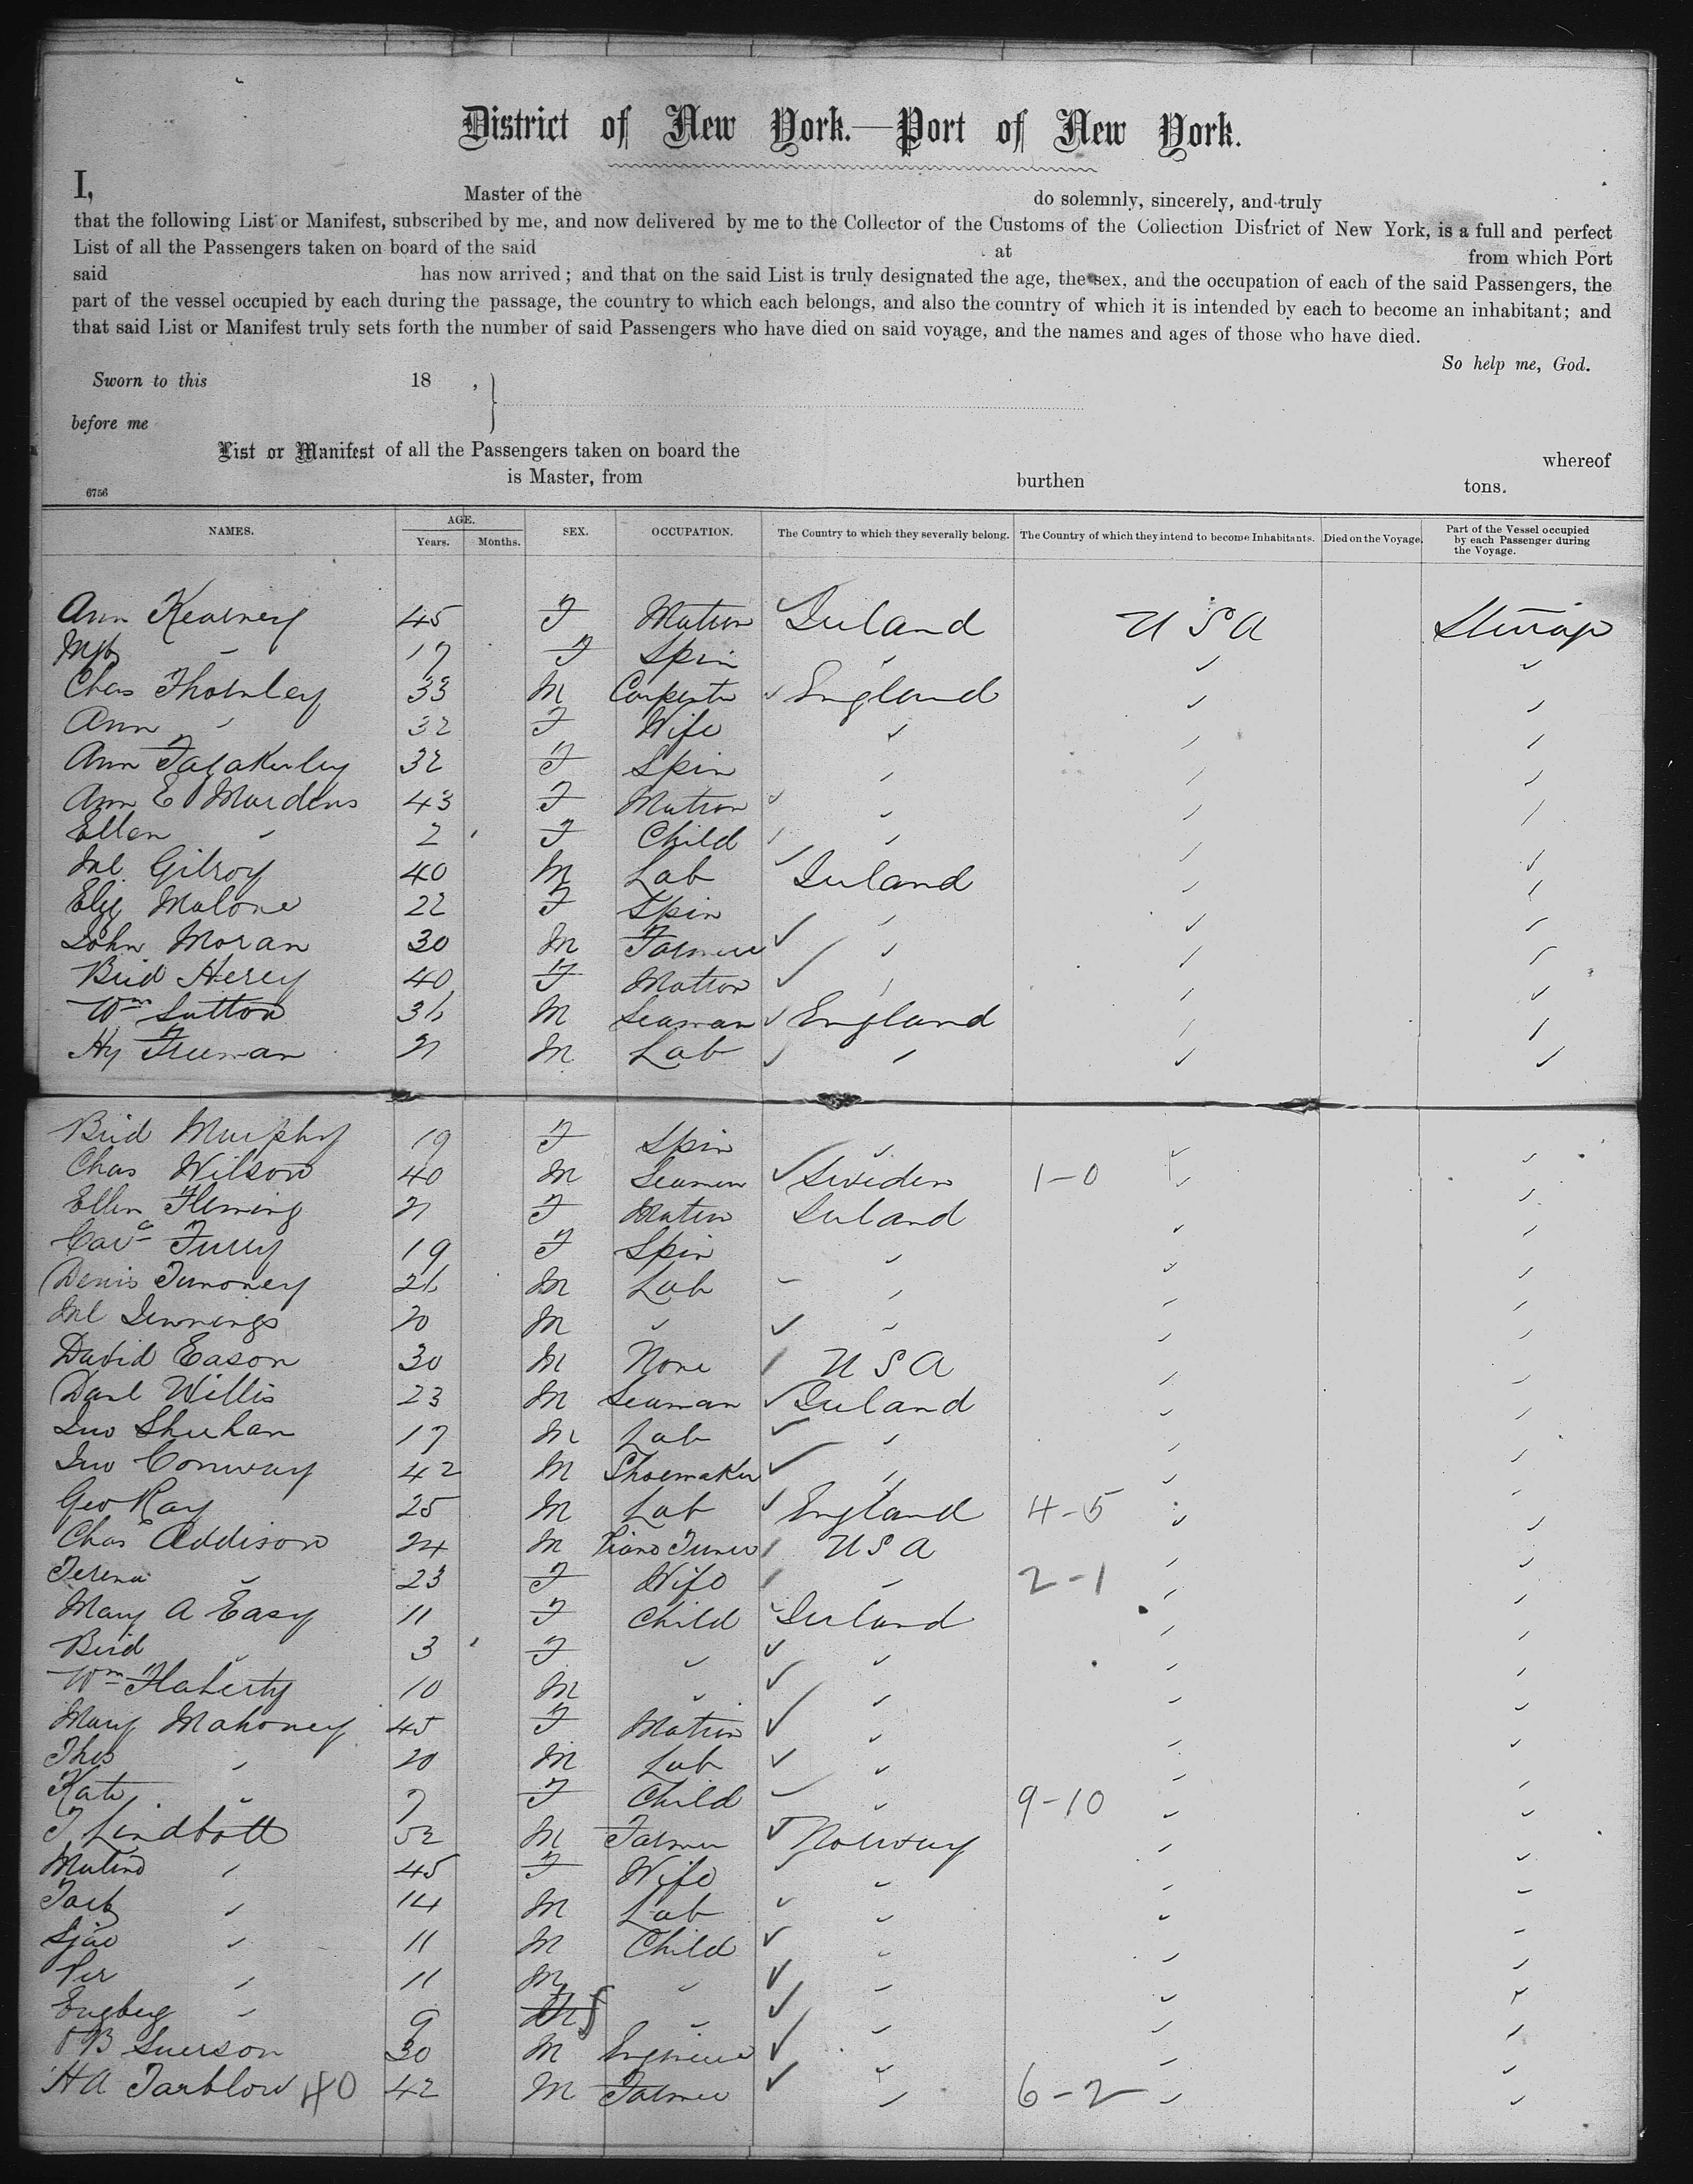 District of New York.—Port of New York.
I, Master of the do solemnly, sincerely, and truly
that the following List or Manifest, subscribed by me, and now delivered by me to the Collector of the Customs of the Collection District of New York, is a full and perfect
List of all the Passengers taken on board of the said at from which Port
said has now arrived; and that on the said List is truly designated the age, the sex, and the occupation of each of the said Passengers, the
part of the vessel occupied by each during the passage, the country to which each belongs, and also the country of which it is intended by each to become an inhabitant; and
that said List or Manifest truly sets forth the number of said Passengers who have died on said voyage, and the names and ages of those who have died.
So help me, God.
Sworn to this 18 ,
before me
List or Manifest of all the Passengers taken on board the whereof
is Master, from burthen tons.
6756
NAMES. AGE. Years. Months. SEX. OCCUPATION. The Country to which they severally belong. The Country of which they intend to become Inhabitants. Died on the Voyage. Part of the Vessel occupied by each Passenger during the Voyage.
Ann Kearney 45 F Matron Ireland U S A
Mgt " 17 F Spin
Chas Thornley 33 M Carpenter England
Ann " 32 F Wife
Ann 32 F Spin
Ann E Mardens 43 F Matron
Ellen " 2 F Child
Ml Gilroy 40 M Lab Ireland
Eliz Malone 22 F Spin
John Moran 30 M Farmer
Brid 40 F Matron
Wm Sutton 36 M Seaman England
Hy Freeman 21 M Lab
Brid Murphy 19 F Spin
Chas Wilson 40 M Seaman Sweden 1-0
Ellen Fleming 21 F Matron Ireland
19 F Spin
Denis Timoney 26 M Lab
Ml Jennings 20 M "
David Eason 30 M None U S A
Danl Willis 23 M Seaman Ireland
Jno Sheehan 17 M Lab
Jno Conway 42 M Shoemaker
Geo Ray 25 M Lab England 4-5
Chas Addison 24 M Piano Tuner U S A
23 F Wife " 2-1
Mary A Easy 11 F Child Ireland
Brid " 3 F "
Wm Flaherty 10 M "
Mary Mahoney 45 F Matron
Thos " 20 M Lab
Kate " 7 F Child 9-10
T Lindbott 52 M Farmer Norway
45 F Wife
14 M Lab
11 M Child
Per " 11 M "
Engberg " 9 f "
30 M Engineer
H A Tarblow 40 42 M Farmer 6-2